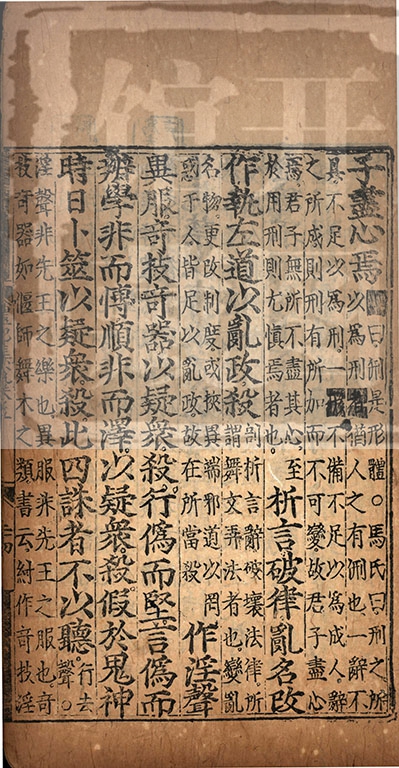 子盡心焉
曰刑是形體。馬氏曰刑之所
以為刑猶人之有刑也一辭不
具不足以為刑一不備不足以為成人辭
之所成則刑有所加而不可變故君子盡心
焉君子無所不盡其心至
於用刑則尤慎焉者也。
析言破律亂名改
作執左道以亂政殺
剖析言辭破壞法律所
謂舞文弄法者也變亂
名物更改制度或挾異端邪道以罔
惑于人皆足以亂政故在所當殺
作淫聲
異服奇技奇器以疑衆殺行偽而堅言偽而
辯學非而博順非而澤以疑衆殺假於鬼神
時日卜筮以疑衆殺此四誅者不以聽
行去
聲。
淫聲非先王之樂也異服非先王之服也奇
技奇器如偃師舞木之類書云紂作奇技淫